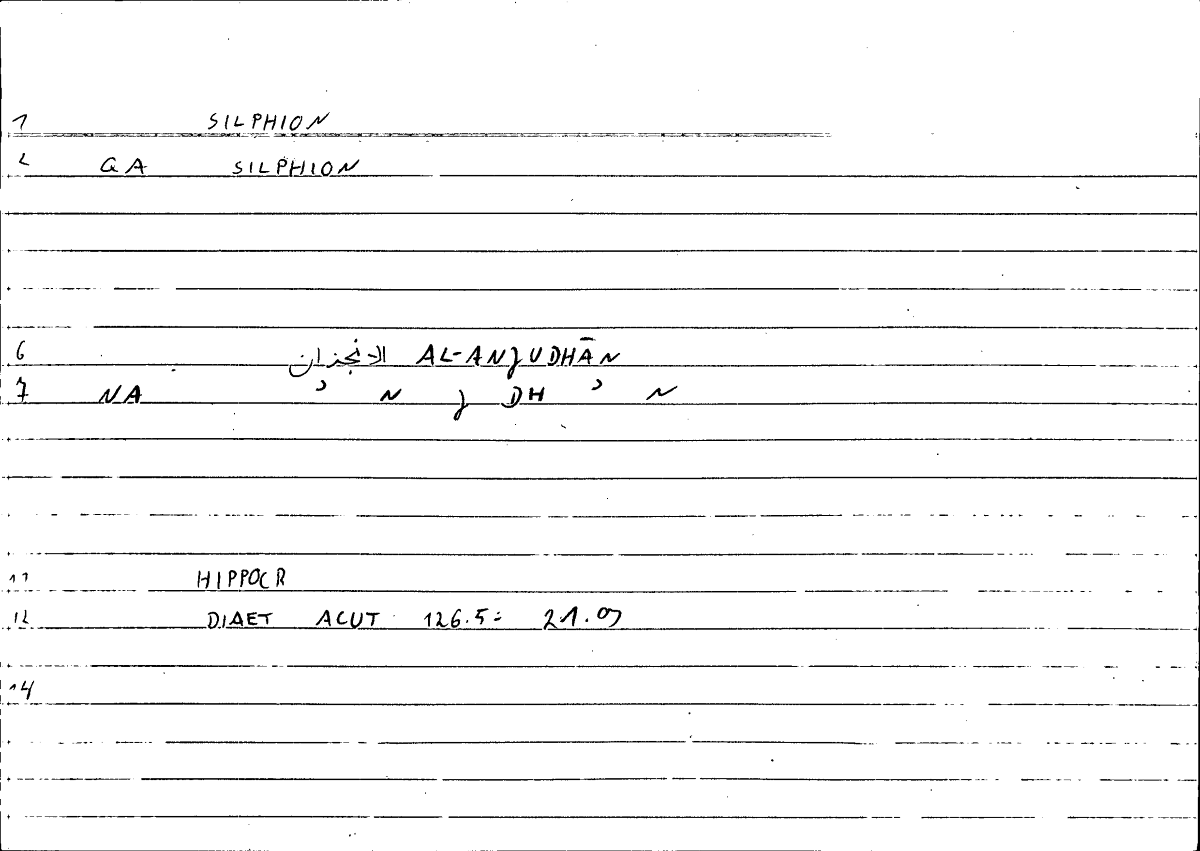 1 SILPHION
2 GA SILPHION
6 الانجذان AL-ANJUDHĀN
7 NA ʾ N J DH ʾ N
11 HIPPOCR
12 DIAET ACUT 126.5: 21.09
14